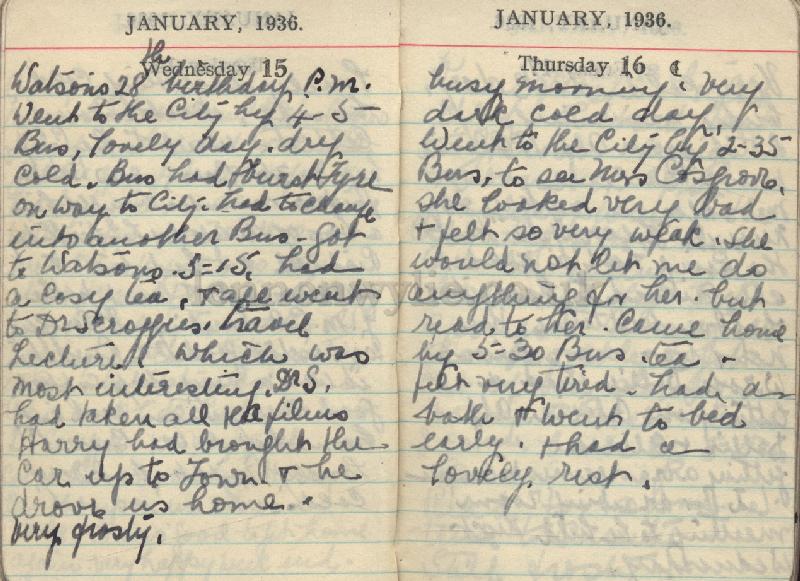 JANUARY, 1936.
Wednesday 15
Watsons 28th birthday P.M.
Went to the City by 4-5
Bus, lovely day. dry
cold. Bus had burst tyre
on way to City. had to change
into another Bus - got
to Watsons. 5=15, had
a cosy tea, + all went
to Dr Scroggies. travel
Lecture. which was
most interesting. Dr S.
had taken all the films
Harry had brought the
Car up to Town + he
drove us home.
very frosty.
JANUARY, 1936.
Thursday 16
busy morning. very
dark cold day,
Went to the City by 2-35
Bus, to see Mrs Cosgrove,
she looked very bad
+ felt so very weak. She
would not let me do
anything for her. but
read to her. Came home
by 5-30 Bus. tea -
felt very tired. had a
bath + went to bed
early. + had a
lovely rest.